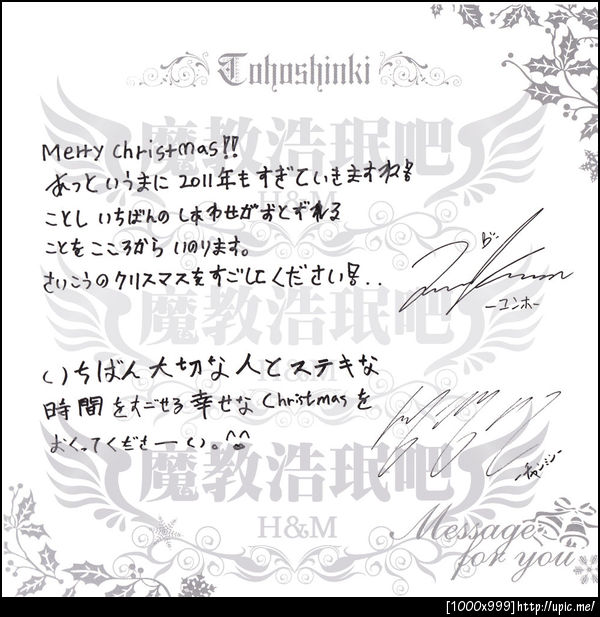 Tohoshinki
魔教浩珉吧
H&M
Merry christmas!!
あっというまに 2011年もすぎていきますね!!
ことし いちばんの しあわせがおとずれる
ことを こころから いのります。
さいこうのクリスマスをすごしてください!!..
By:
ーユンホー
魔教浩珉吧
H&M
いちばん 大切な人と ステキな
時間をすごせる 幸せな Christmasを
おくってくださーい。^^
ーチャンミンー
魔教浩珉吧
H&M
Message
for you
[1000x999]http://upic.me/